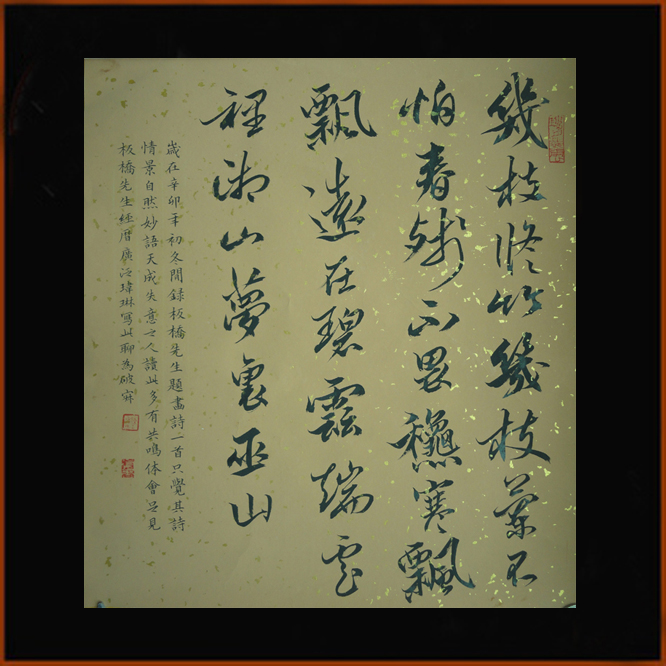 幾枝修竹幾枝蘭不
怕春殘不畏穐寒飄
飄遠在碧雲端雲
裡湘山夢裏巫山
歲在辛卯年初冬閒錄板橋先生題畫詩一首只覺其詩
情景自然妙語天成失意之人讀此多有共鳴体會足見
板橋先生經厝廣泛瑋琳寫此聊為破寐